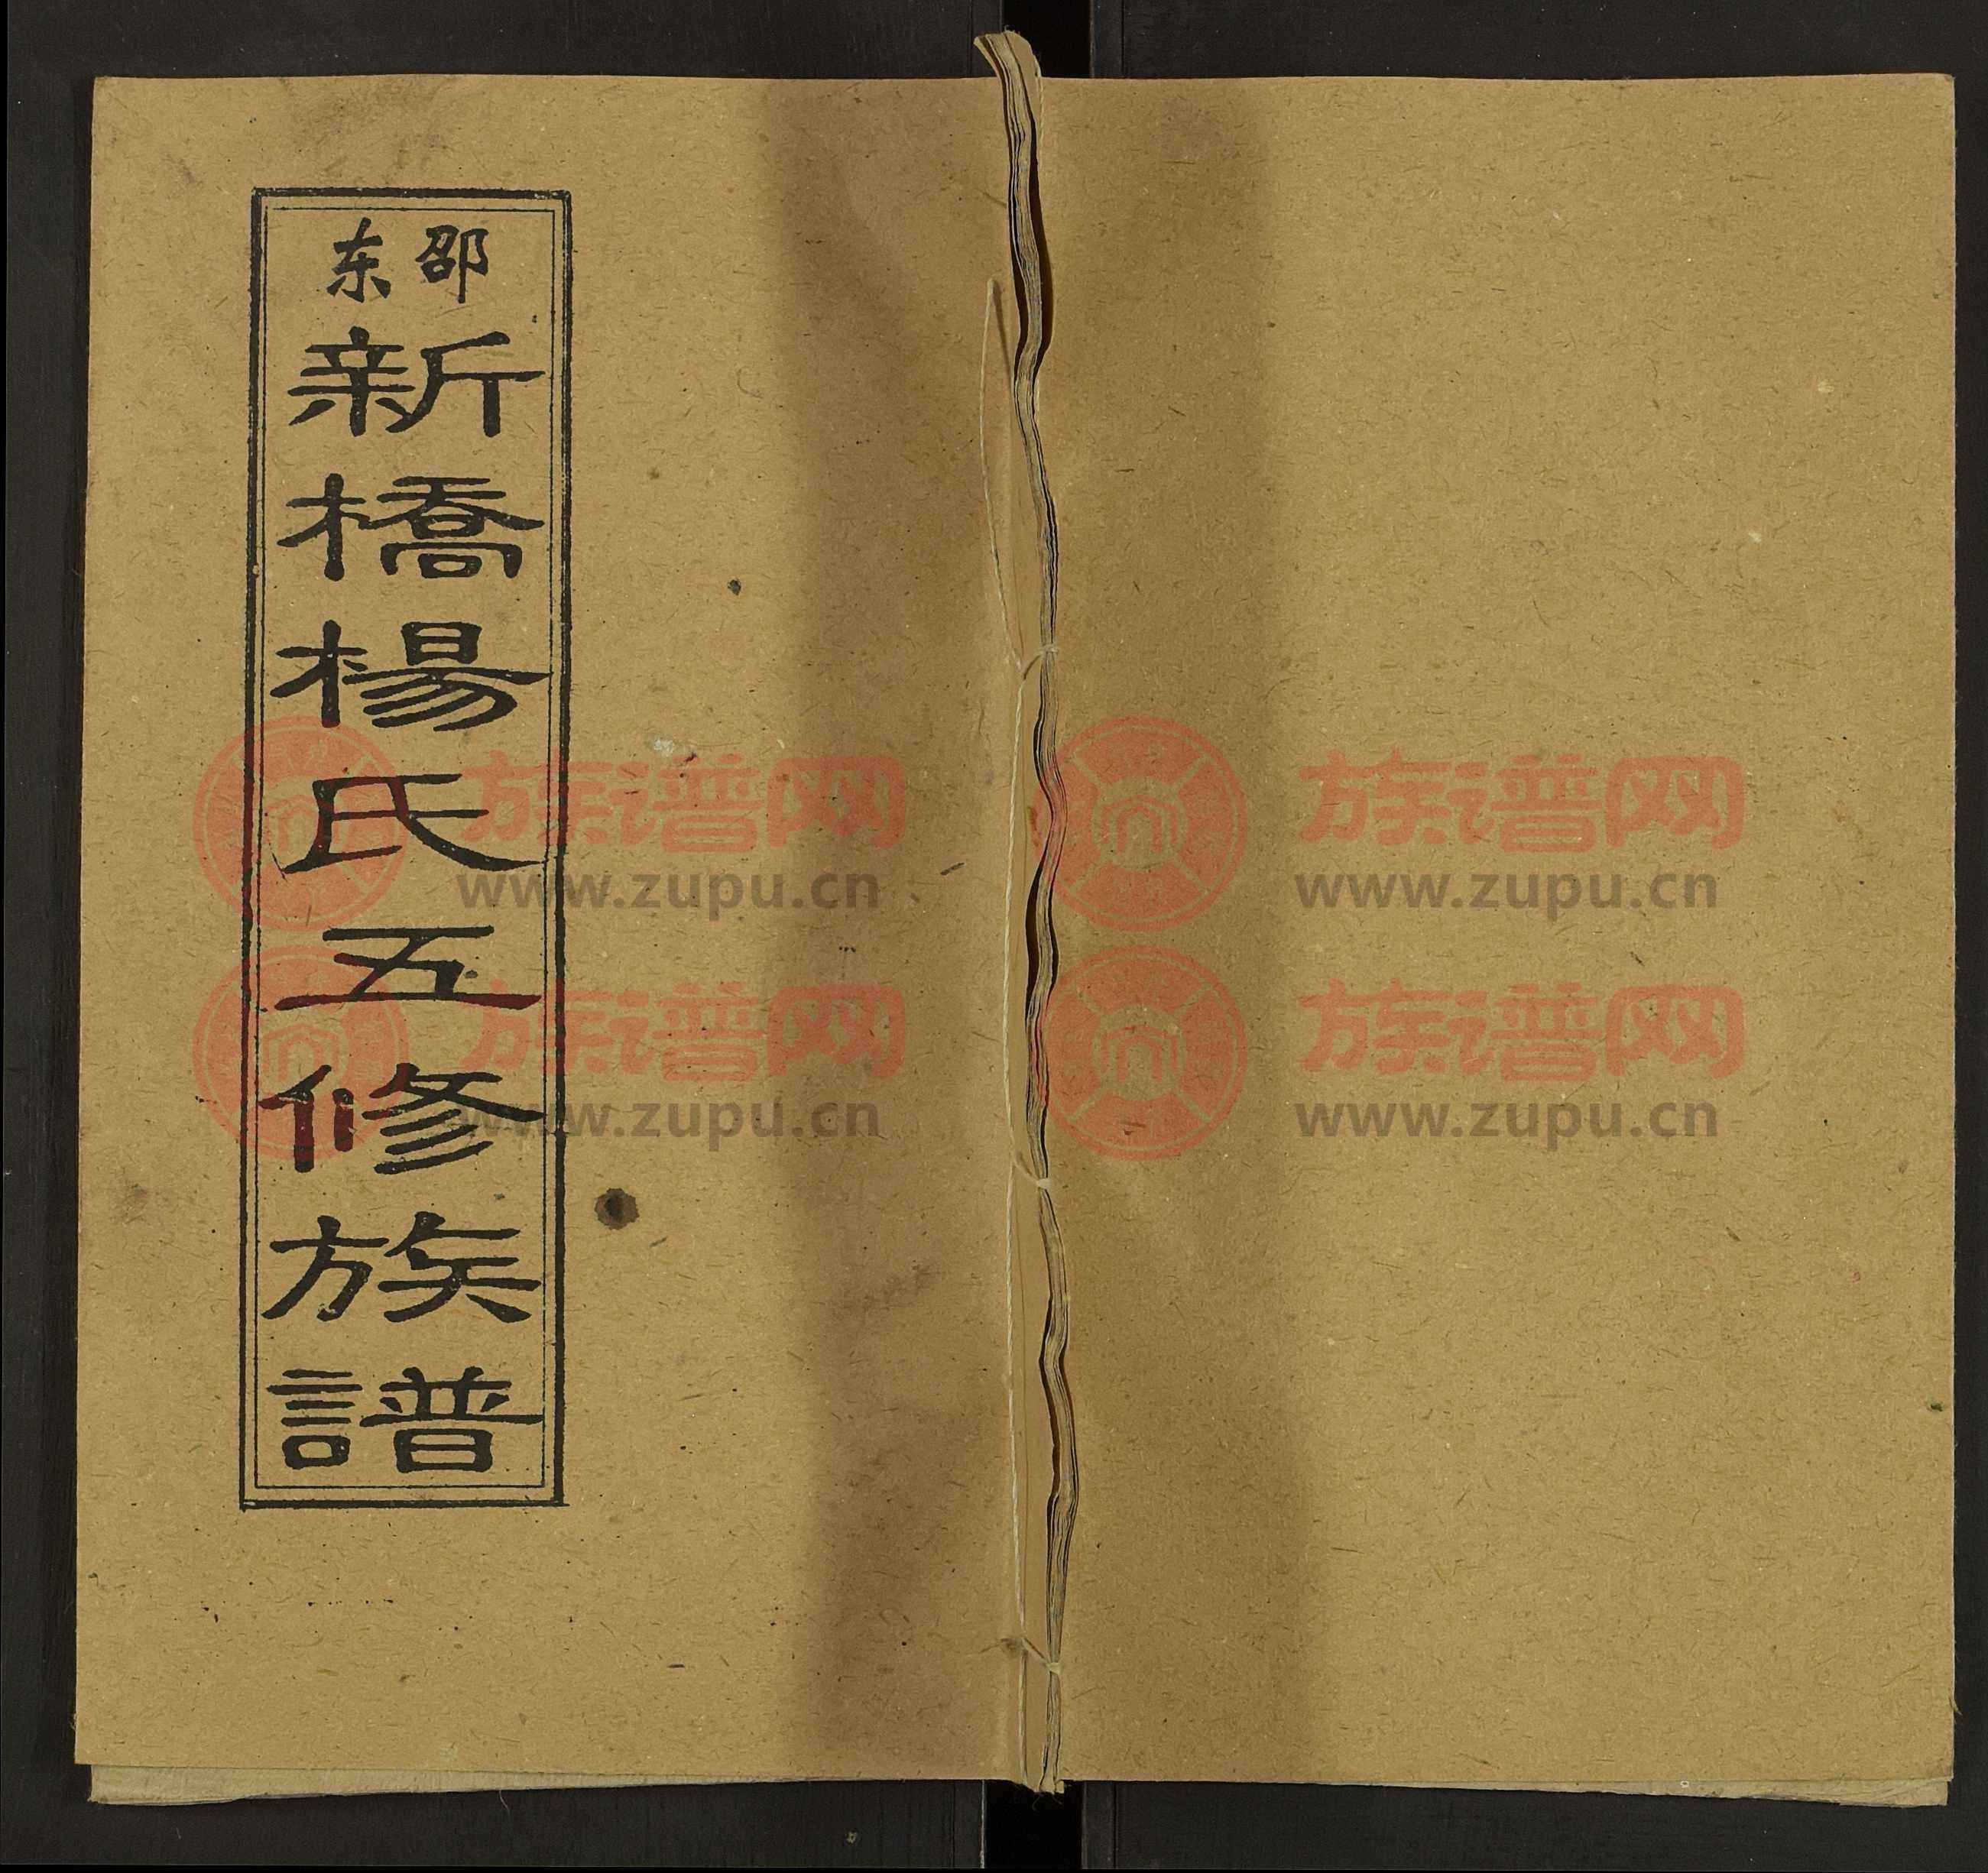 邵东
新橋楊氏五修族譜
族谱网
www.zupu.cn
族谱网
www.zupu.cn
族谱网
www.zupu.cn
族谱网
www.zupu.cn